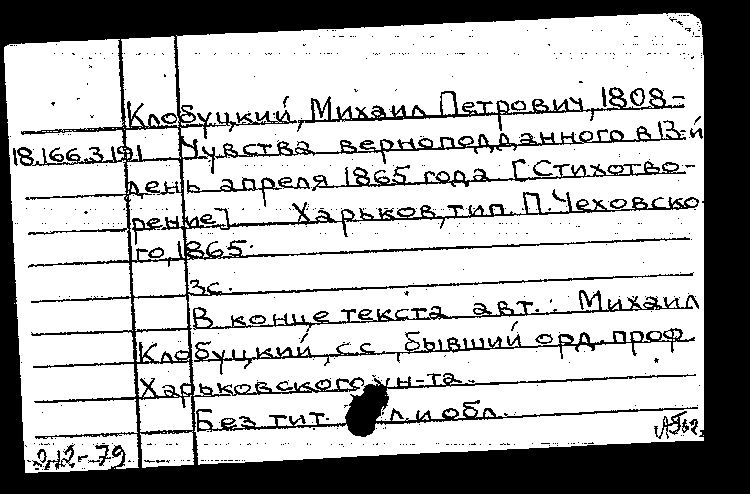 Клобуцкий, Михаил Петрович, 1808-
18.166.3.191 Чувства верноподданного в 13-й
день апреля 1865 года [Стихотво-
рение] Харьков, тип. П. Чеховско
го, 1865.
3с.
В конце текста авт.: Михаил
Клобуцкий, с.с., бывший орд. проф.
Харьковского ун-та.
Без тит. л. и обл.
2,12-79